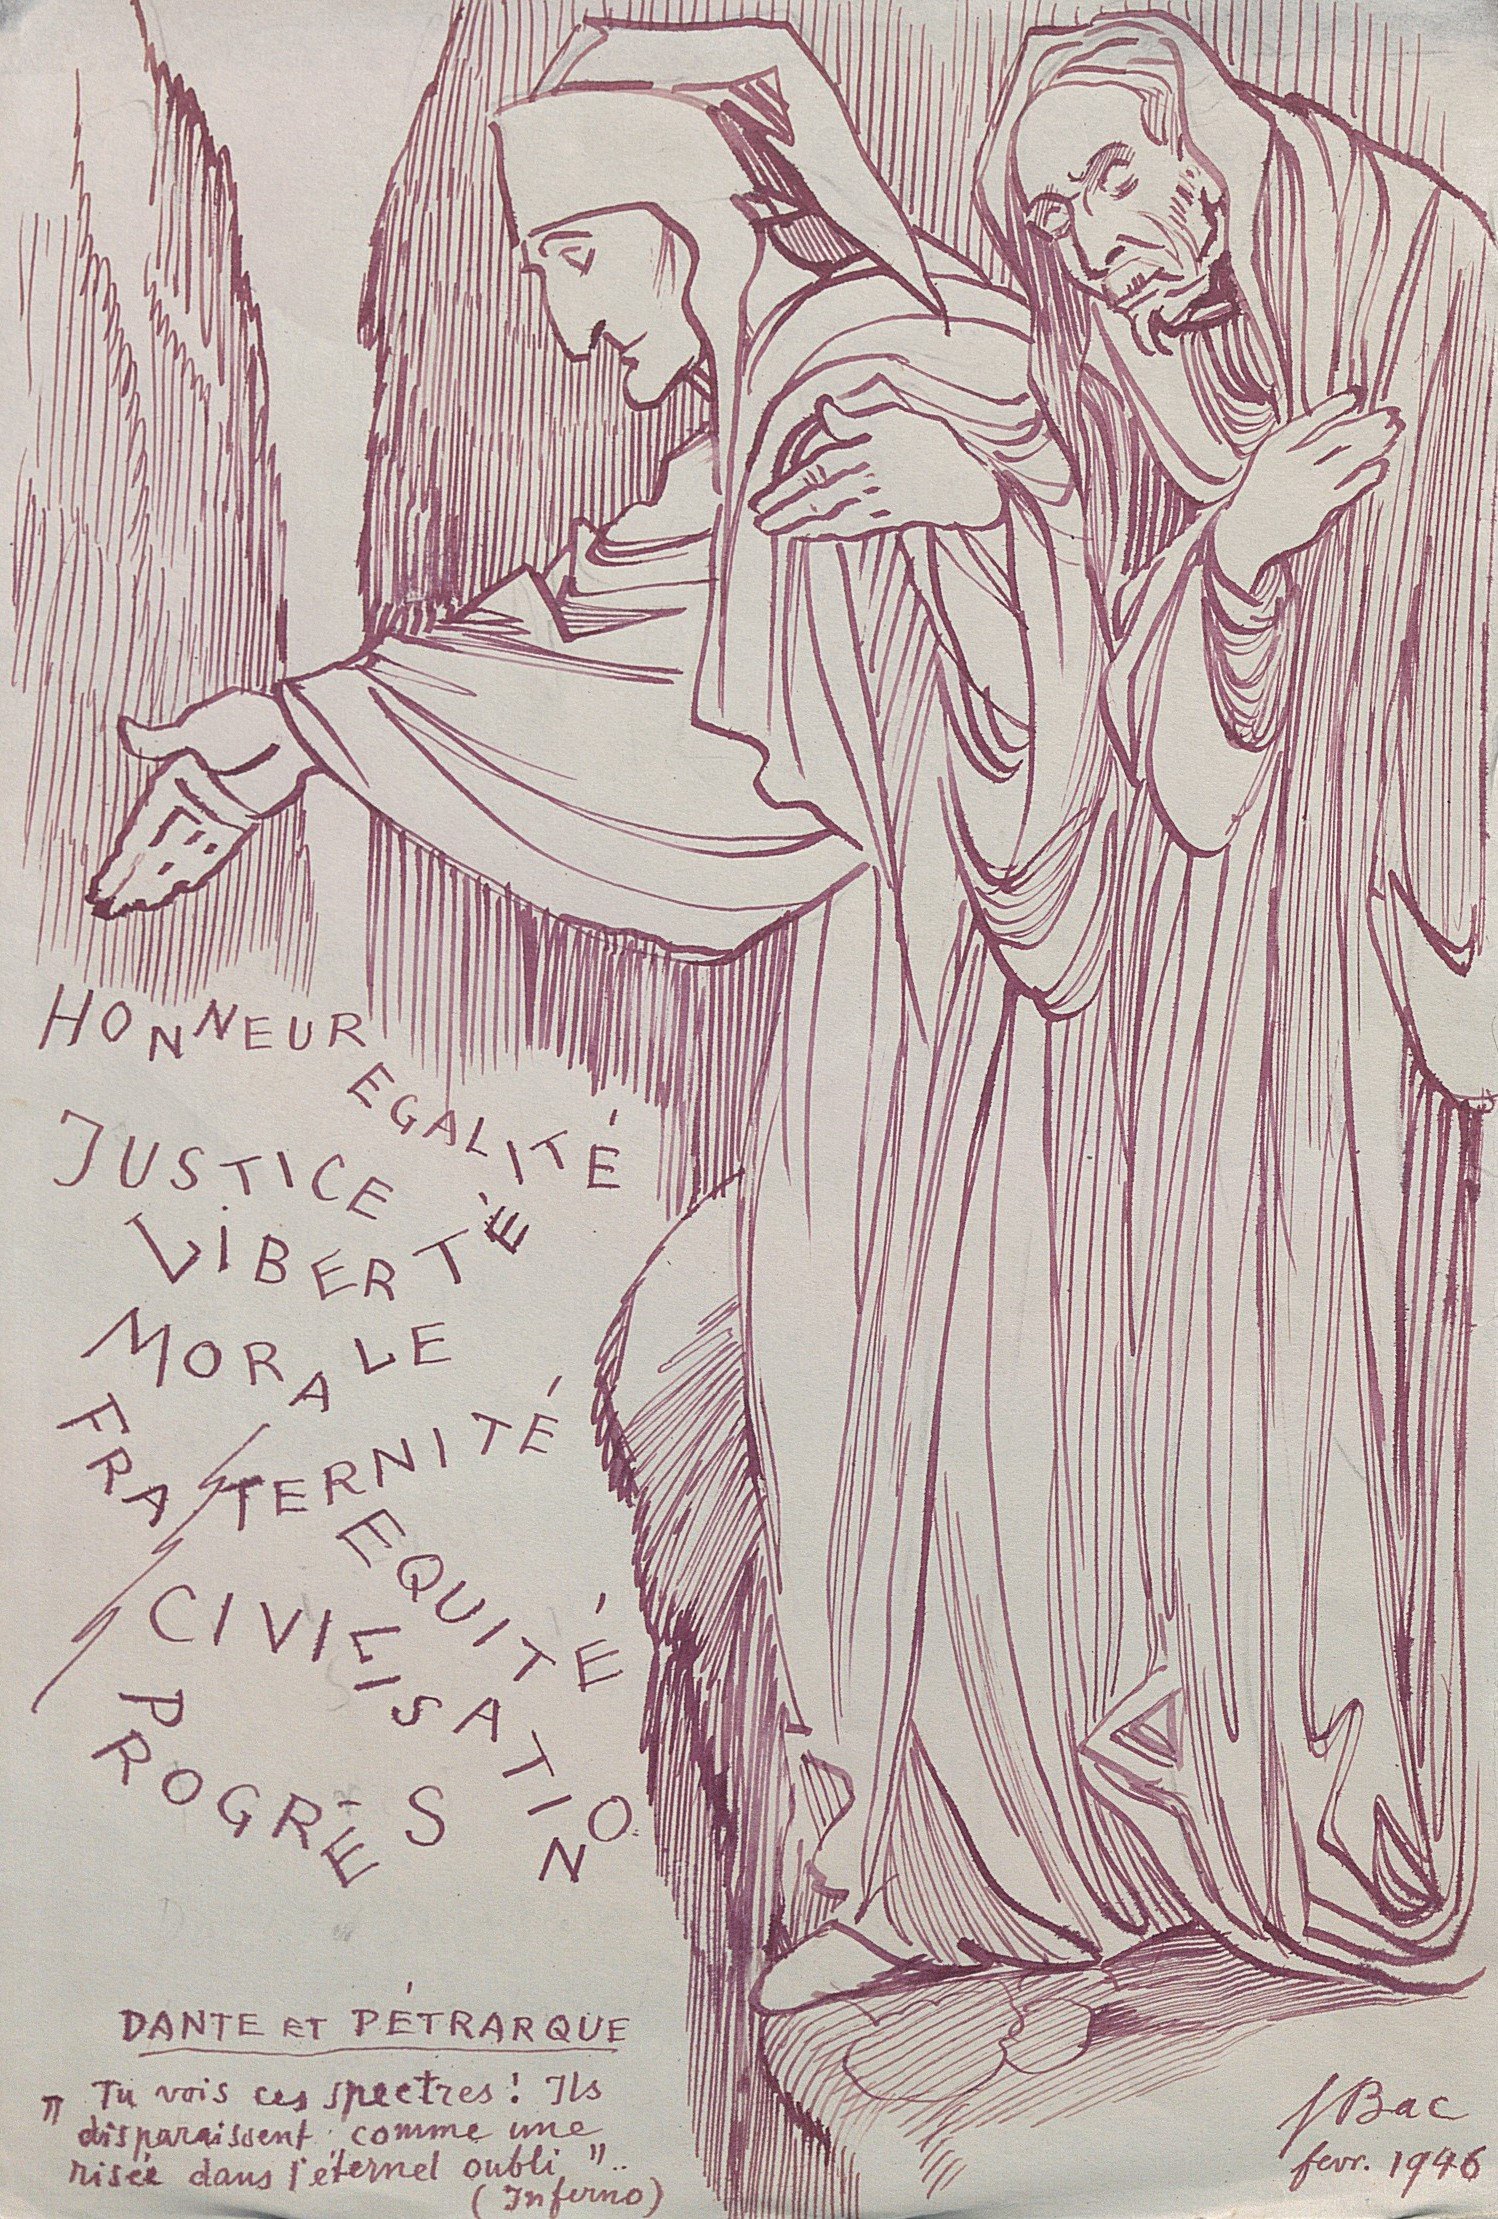 HONNEUR
EGALITÉ
JUSTICE
LIBERTÉ
MORALE
FRATERNITÉ
EQUITÉ
CIVILISATION
PROGRÈS
DANTE ET PÉTRARQUE
" Tu vois ces spectres! Ils
disparaissent comme une
risée dans l'éternel oubli "..
(Inferno)
f Bac
fevr. 1946